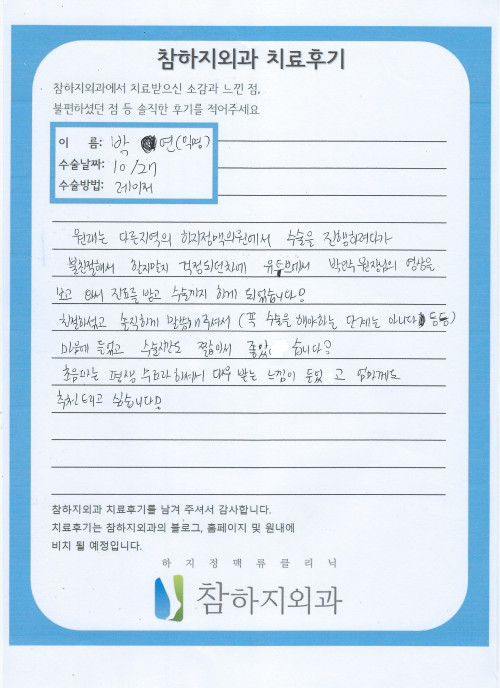 참하지외과 치료후기
참하지외과에서 치료받으신 소감과 느낀 점,
불편하셨던 점 등 솔직한 후기를 적어주세요
이 름: 박 연(익명)
수술날짜: 10/27
수술방법: 레이저
원래는 다른지역의 하지정맥의원에서 수술을 진행하려다가
불친절해서 할지말지 걱정되던차에 유튜브에서 박인수원장님의 영상을
보고 와서 진료를 받고 수술까지 하게 되었습니다!
친절하셨고 솔직하게 말씀해주셔서 (꼭 수술을 해야하는 단계는 아니다 등등)
마음에 들었고 수술시간도 짧아서 좋았 습니다?
초음파는 평생 무료라하셔서 대우 받는 느낌이 들었 고 엄마께도
추천드리고 싶습니다!
참하지외과 치료후기를 남겨 주셔서 감사합니다.
치료후기는 참하지외과의 블로그, 홈페이지 및 원내에
비치 될 예정입니다.
하지정맥류클리닉
참하지외과